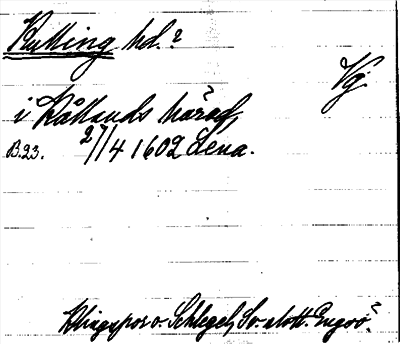 Kulling hd.?
Vg.
i Kållands härad,
B.23. 27/4 1602 Lena.
Klingspor o. Schlegel, Sv. slott. Engsö?